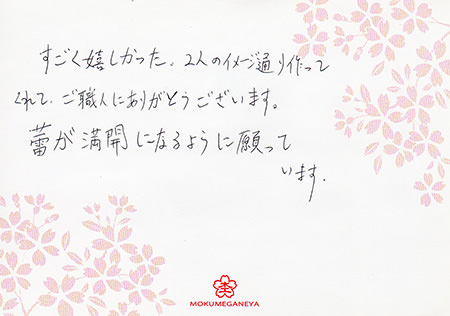 すごく嬉しかった。2人のイメージ通り作って
くれて、ご職人にありがとうございます。
蕾が満開になるように願って
います.
MOKUMEGANEYA